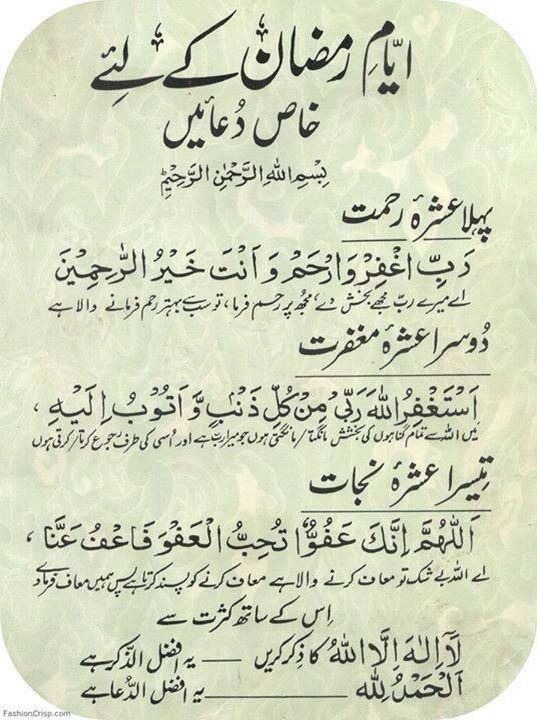 ایّامِ رمضان کے لئے
خاص دُعائیں
بِسْمِ اللهِ الرَّحْمٰنِ الرَّحِيْمِ
پہلا عشرۂ رحمت
رَبِّ اغْفِرْ وَارْحَمْ وَاَنْتَ خَيْرُ الرّٰحِمِيْنَ
اے میرے ربّ مجھے بخش دے، مجھ پر رحم فرما، تو سب سے بہتر رحم فرمانے والا ہے
دُوسرا عشرۂ مغفرت
اَسْتَغْفِرُ اللهَ رَبِّيْ مِنْ كُلِّ ذَنْۢبٍ وَّاَتُوْبُ اِلَيْهِ ،
میں اللہ سے تمام گناہوں کی بخشش مانگتا/مانگتی ہوں جو میرا ربّ ہے اور اُسی کی طرف رجوع کرتا/کرتی ہوں
تیسرا عشرۂ نجات
اَللّٰهُمَّ اِنَّكَ عَفُوٌّ تُحِبُّ الْعَفْوَ فَاعْفُ عَنَّا ،
اے اللہ بے شک تو معاف کرنے والا ہے معاف کرنے کو پسند کرتا ہے پس ہمیں معاف فرما دے
اِس کے ساتھ کثرت سے
لَآ اِلٰهَ اِلَّا اللهُ کا ذکر کریں —— یہ افضل الذّکر ہے
اَلْحَمْدُ لِلّٰهِ —————— یہ افضل الدُّعا ہے
FashionCrisp.com